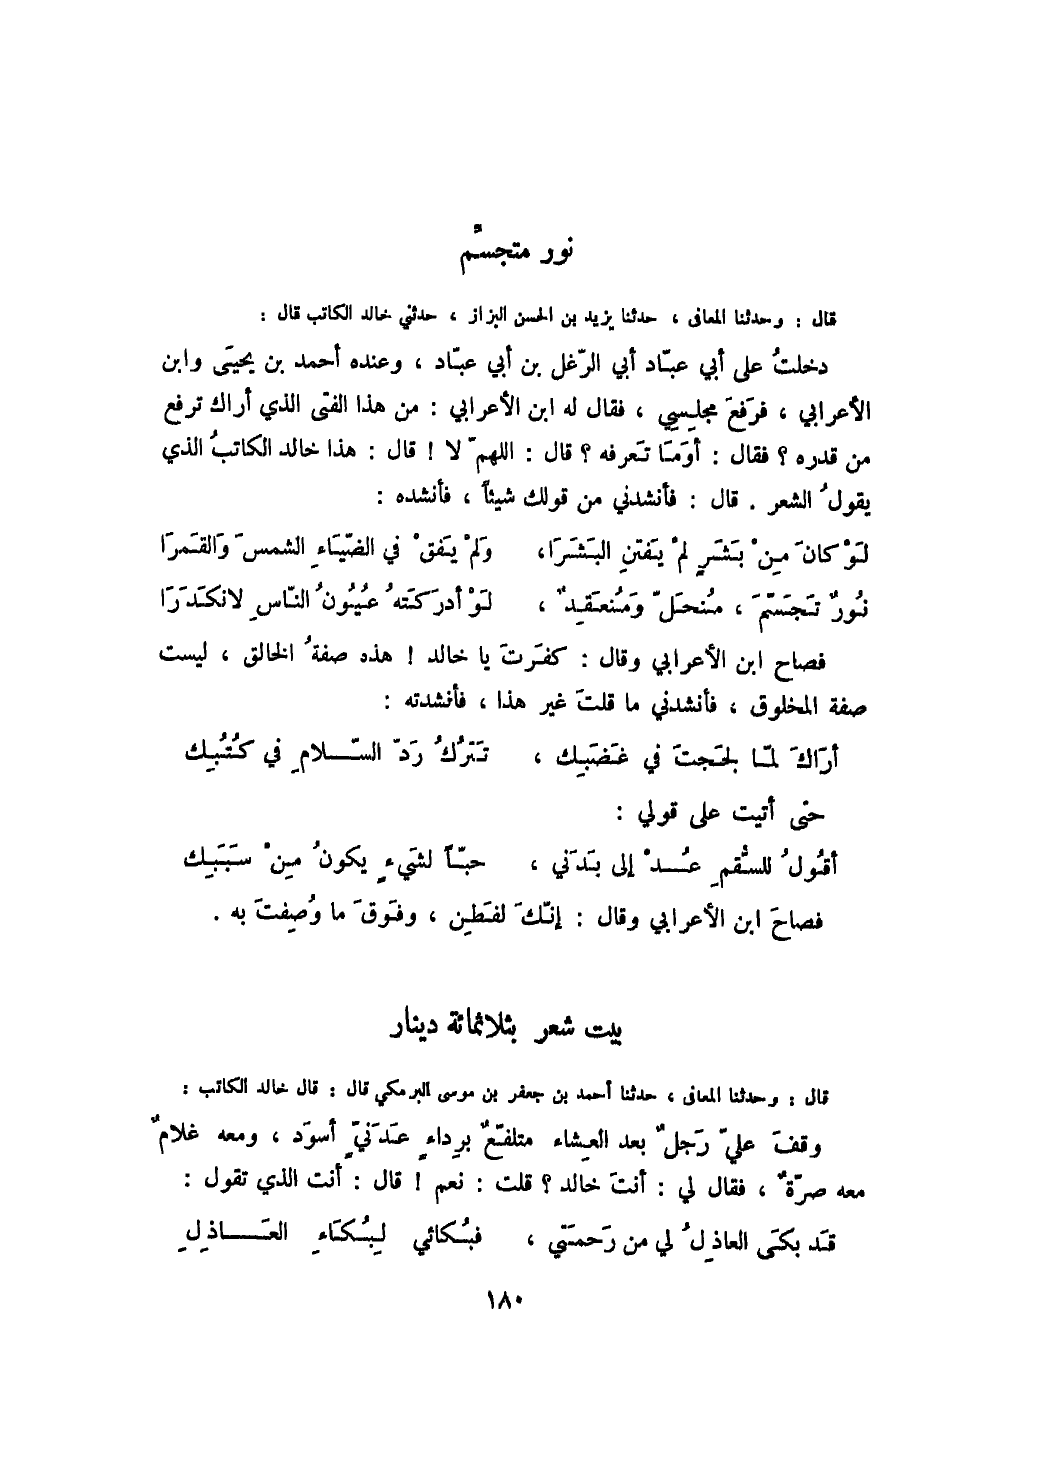 نور متجسّم
قال : وحدثنا المعافى ، حدثنا يزيد بن الحسن البزاز ، حدثني خالد الكاتب قال :
دخلتُ على أبي عبّاد أبي الرّغل بن أبي عبّاد ، وعنده أحمد بن يحيَى وابن
الأعرابي ، فرَفعَ مجلِسِي ، فقال له ابن الأعرابي : من هذا الفتى الذي أراك ترفع
من قدره ؟ فقال : أوَمَا تَعرفه ؟ قال : اللهمّ لا ! قال : هذا خالد الكاتبُ الذي
يقولُ الشعر . قال : فأنشدني من قولك شيئاً ، فأنشده :
لَوْ كانَ مِنْ بَشَرٍ لمْ يَفتنِ البَشَرَا، وَلمْ يَفقْ في الضّيَاءِ الشمسَ وَالقَمرَا
نُورٌ تَجَسّمَ ، مُنحَلّ وَمُنعَقِدٌ ، لَوْ أدرَكَتهُ عيُونُ النّاسِ لانكَدَرَا
فصاح ابن الأعرابي وقال : كفَرتَ يا خالد ! هذه صفةُ الخالق ، ليست
صفة المخلوق ، فأنشدني ما قلتَ غير هذا ، فأنشدته :
أرَاكَ لمّا لجَجتَ في غَضَبِك ، تَترُكُ رَدّ السّلامِ في كُتُبِك
حتى أتيت على قولي :
أقُولُ للسُّقمِ عُدْ إلى بَدَني ، حبّاً لشَيءٍ يكونُ مِنْ سبَبِك
فصاحَ ابن الأعرابي وقال : إنّكَ لفَطِن ، وفوقَ ما وُصِفتَ به .
بيت شعر بثلاثمائة دينار
قال : وحدثنا المعافى ، حدثنا أحمد بن جعفر بن موسى البرمكي قال : قال خالد الكاتب :
وقفَ عليّ رَجلٌ بعد العِشاء متلفّعٌ برِداءٍ عَدَنيّ أسوَد ، ومعه غلامٌ
معه صرّةٌ ، فقال لي : أنتَ خالد ؟ قلت : نعم ! قال : أنت الذي تقول :
قَد بكَى العاذِلُ لي من رَحمَتي ، فبُكائي لِبُكَاءِ العَاذِلِ
١٨٠